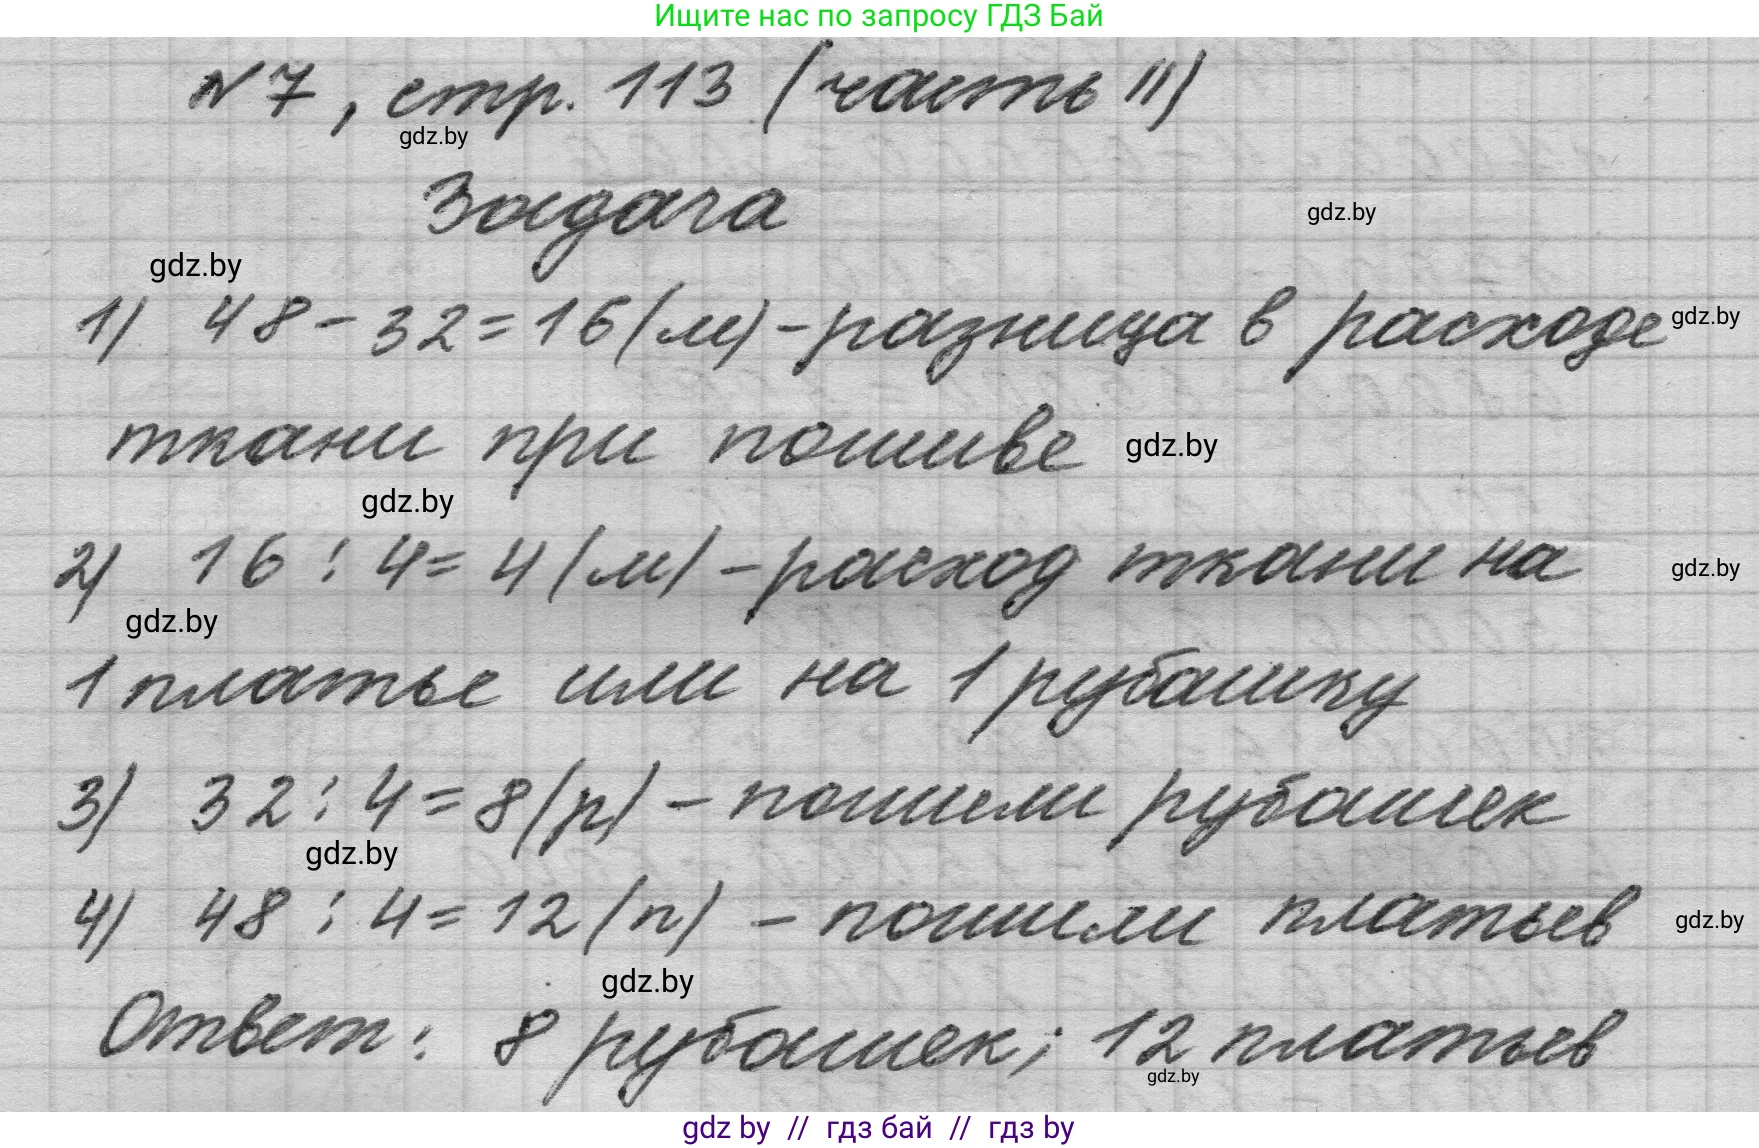 Ищите нас по запросу ГДЗ Бай
№7, стр. 113 (часть II)
gdz.by
Задача
gdz.by
gdz.by
1) 48 - 32 = 16 (м) - разница в расходе
gdz.by
ткани при пошиве
gdz.by
gdz.by
2) 16 : 4 = 4 (м) - расход ткани на
gdz.by
gdz.by
1 платье или на 1 рубашку
3) 32 : 4 = 8 (р) - пошили рубашек
gdz.by
4) 48 : 4 = 12 (п) - пошили платьев
gdz.by
gdz.by
Ответ: 8 рубашек; 12 платьев
gdz.by
gdz by // гдз бай // гдз by